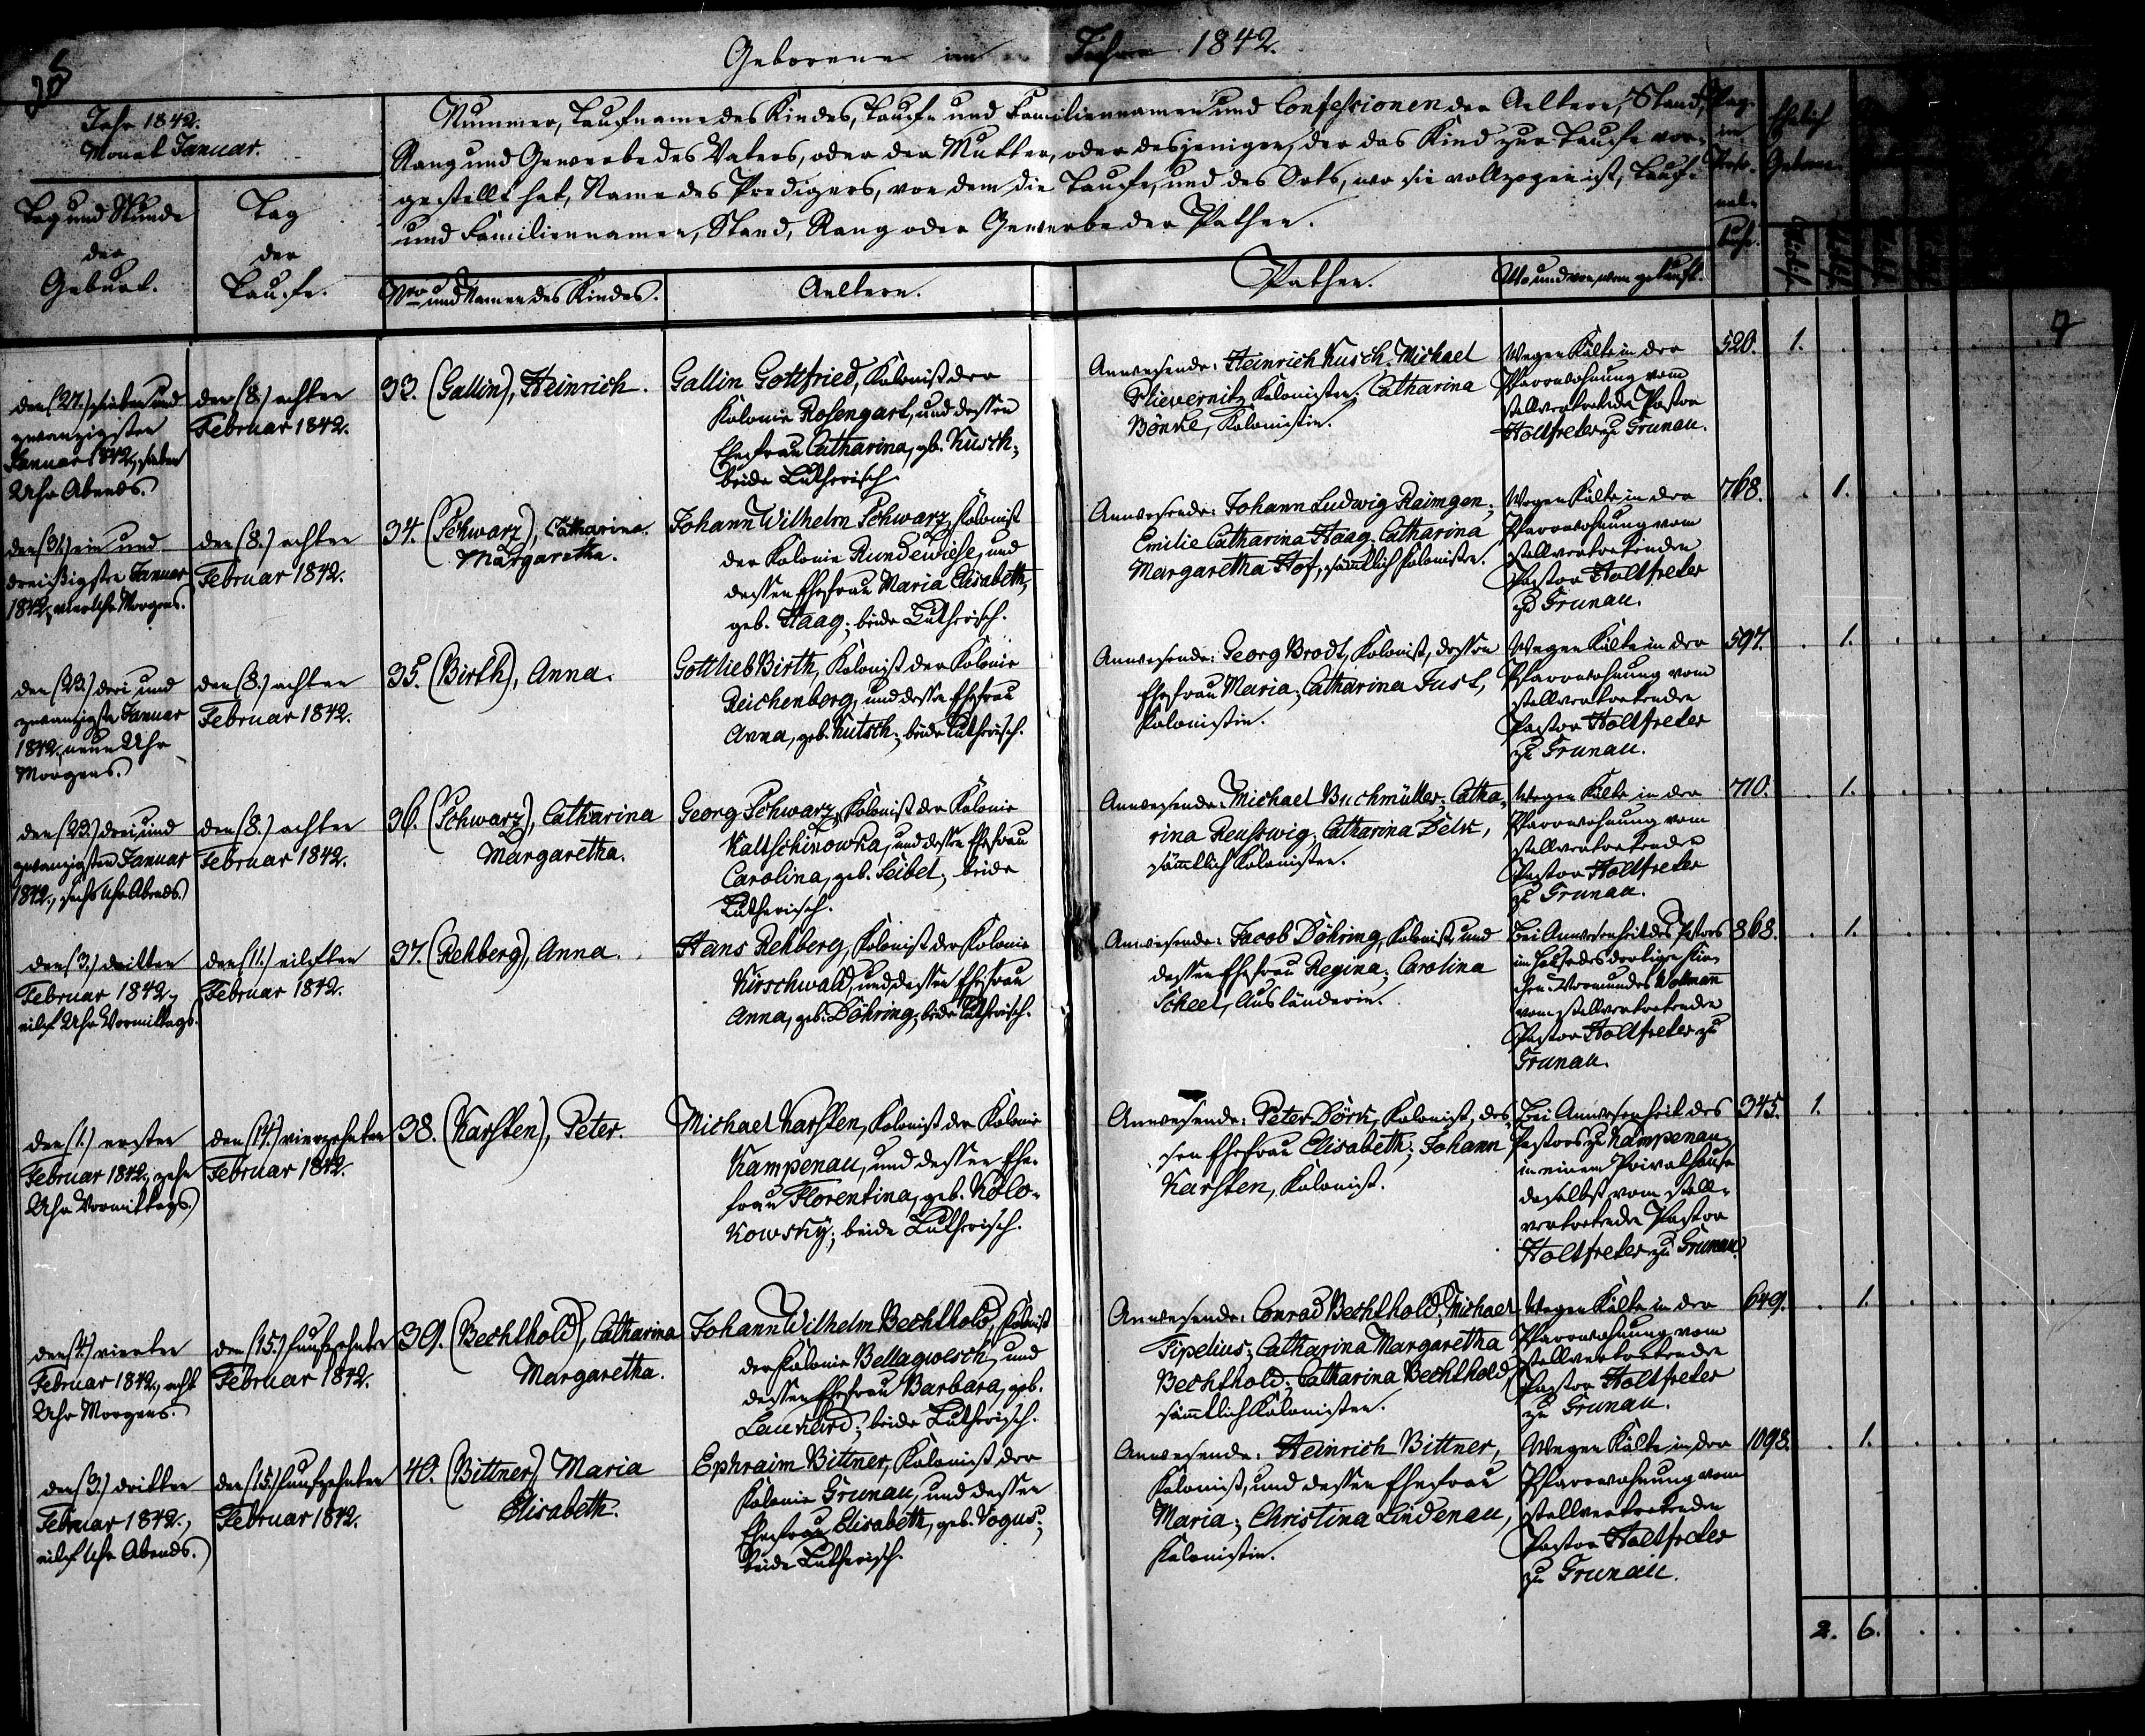 Geborene im Jahre 1842.
Jahr 1842.
Monat Januar.
Nummer, Taufname des Kindes, Taufe und Familiennamen und Confessionen der Aeltern, Stand,
Rang und Gewerbe des Vaters, oder der Mutter, oder desjenigen, der das Kind zur Taufe vor-
gestellt hat, Name des Predigers, von dem die Taufe, und des Orts, wo sie vollzogen ist, Tauf-
und Familiennamen, Stand, Rang oder Gewerbe der Pathen.
Pag.
im
Ehelich
Geborene
Tag und Stunde
der
Geburt.
Tag
der
Taufe.
Nro und Namen des Kindes.
Aeltern.
Pathen.
Wo und von wem getauft.
7
den (27.) sieben und
zwanzigsten
Januar 1842, sieben
Uhr Abends.
den (8.) achten
Februar 1842.
33. (Gallin), Heinrich.
Gallin Gottfried, Kolonist der
Kolonie Rosengart, und dessen
Ehefrau Catharina, gb. Kusch;
beide Lutherisch.
Anwesende: Heinrich Kusch; Michael
Plievernitz, Kolonisten; Catharina
Bönke, Kolonistin.
Wegen Kälte in der
Pfarrwohnung vom
stellvertretende Pastor
Holtfreter zu Grunau.
520. 1.
den (31.) ein und
dreißigsten Januar
1842, vier Uhr Morgens.
den (8.) achten
Februar 1842.
34. (Schwarz), Catharina
Margaretha.
Johann Wilhelm Schwarz, Kolonist
der Kolonie Rundewiese, und
dessen Ehefrau Maria Elisabeth,
geb. Haag; beide Lutherisch.
Anwesende: Johann Ludwig Raimgen;
Emilie Catharina Haag; Catharina
Margaretha Hof, sämtlich Kolonisten.
Wegen Kälte in der
Pfarrwohnung vom
stellvertretenden
Pastor Holtfreter
zu Grunau.
768. 1.
den (23.) drei und
zwanzigsten Januar
1842, neun Uhr
Morgens.
den (8.) achten
Februar 1842.
35. (Birth), Anna.
Gottlieb Birth, Kolonist der Kolonie
Reichenberg, und dessen Ehefrau
Anna, geb. Kutsch; beide Lutherisch.
Anwesende: Georg Brodt, Kolonist, dessen
Ehefrau Maria; Catharina Just,
Kolonistin.
Wegen Kälte in der
Pfarrwohnung vom
stellvertretenden
Pastor Holtfreter
zu Grunau.
597. 1.
den (23.) drei und
zwanzigsten Januar
1842, sechs Uhr Abends.
den (8.) achten
Februar 1842.
36. (Schwarz), Catharina
Margaretha.
Georg Schwarz, Kolonist der Kolonie
Kaltschinowka, und dessen Ehefrau
Carolina, geb. Seibel; beide
Lutherisch.
Anwesende: Michael Buchmüller; Catha-
rina Reuswig; Catharina
sämmtlich Kolonisten.
Wegen Kälte in der
Pfarrwohnung vom
stellvertretenden
Pastor Holtfreter
zu Grunau.
710. 1.
den (3.) dritten
Februar 1842,
eilf Uhr Vormittags.
den (11.) eilften
Februar 1842.
37. (Rehberg), Anna.
Hans Rehberg, Kolonist der Kolonie
Kirschwald, und dessen Ehefrau
Anna, geb. Döhring; beide Lutherisch.
Anwesende: Jacob Döhring, Kolonist, und
dessen Ehefrau Regina; Carolina
Scheel, Ausländerin.
Bei Anwesenheit des Pastors
im Hause des dortigen Kir-
chen-Vormundes Wollmann
vom stellvertretenden
Pastor Holtfreter zu
Grunau.
868. 1.
den (1.) ersten
Februar 1842, zehn
Uhr Vormittags.
den (14.) vierzehnten
Februar 1842.
38. (Karsten), Peter.
Michael Karsten, Kolonist der Kolonie
Kampenau, und dessen Ehe-
frau Florentina, geb. Kolo-
kowsky; beide Lutherisch.
Anwesende: Peter Dörk, Kolonist, des-
sen Ehefrau Elisabeth; Johann
Karsten, Kolonist.
Bei Anwesenheit des
Pastors zu Kampenau,
in einem Privathause
daselbst vom stell-
vertretenden Pastor
Holtfreter zu Grunau.
345. 1.
den (4.) vierten
Februar 1842, acht
Uhr Morgens.
den (15.) funfzehnten
Februar 1842.
39. (Bechthold), Catharina
Margaretha.
Johann Wilhelm Bechthold, Kolonist
der Kolonie Bellagwesch, und
dessen Ehefrau Barbara, geb.
Laukard; beide Lutherisch.
Anwesende: Conrad Bechthold; Michael
Fipelius; Catharina Margaretha
Bechthold; Catharina Bechthold,
sämmtlich Kolonisten.
Wegen Kälte in der
Pfarrwohnung vom
stellvertretenden
Pastor Holtfreter
zu Grunau.
649. 1.
den (3.) dritten
Februar 1842,
eilf Uhr Abends.
den (15.) funfzehnten
Februar 1842.
40. (Bittner), Maria
Elisabeth.
Ephraim Bittner, Kolonist der
Kolonie Grunau, und dessen
Ehefrau Elisabeth, geb. Vogus;
beide Lutherisch.
Anwesende: Heinrich Bittner,
Kolonist, und dessen Ehefrau
Maria; Christina Lindenau,
Kolonistin.
Wegen Kälte in der
Pfarrwohnung vom
stellvertretenden
Pastor Holtfreter
zu Grunau.
1098. 1.
2. 6.